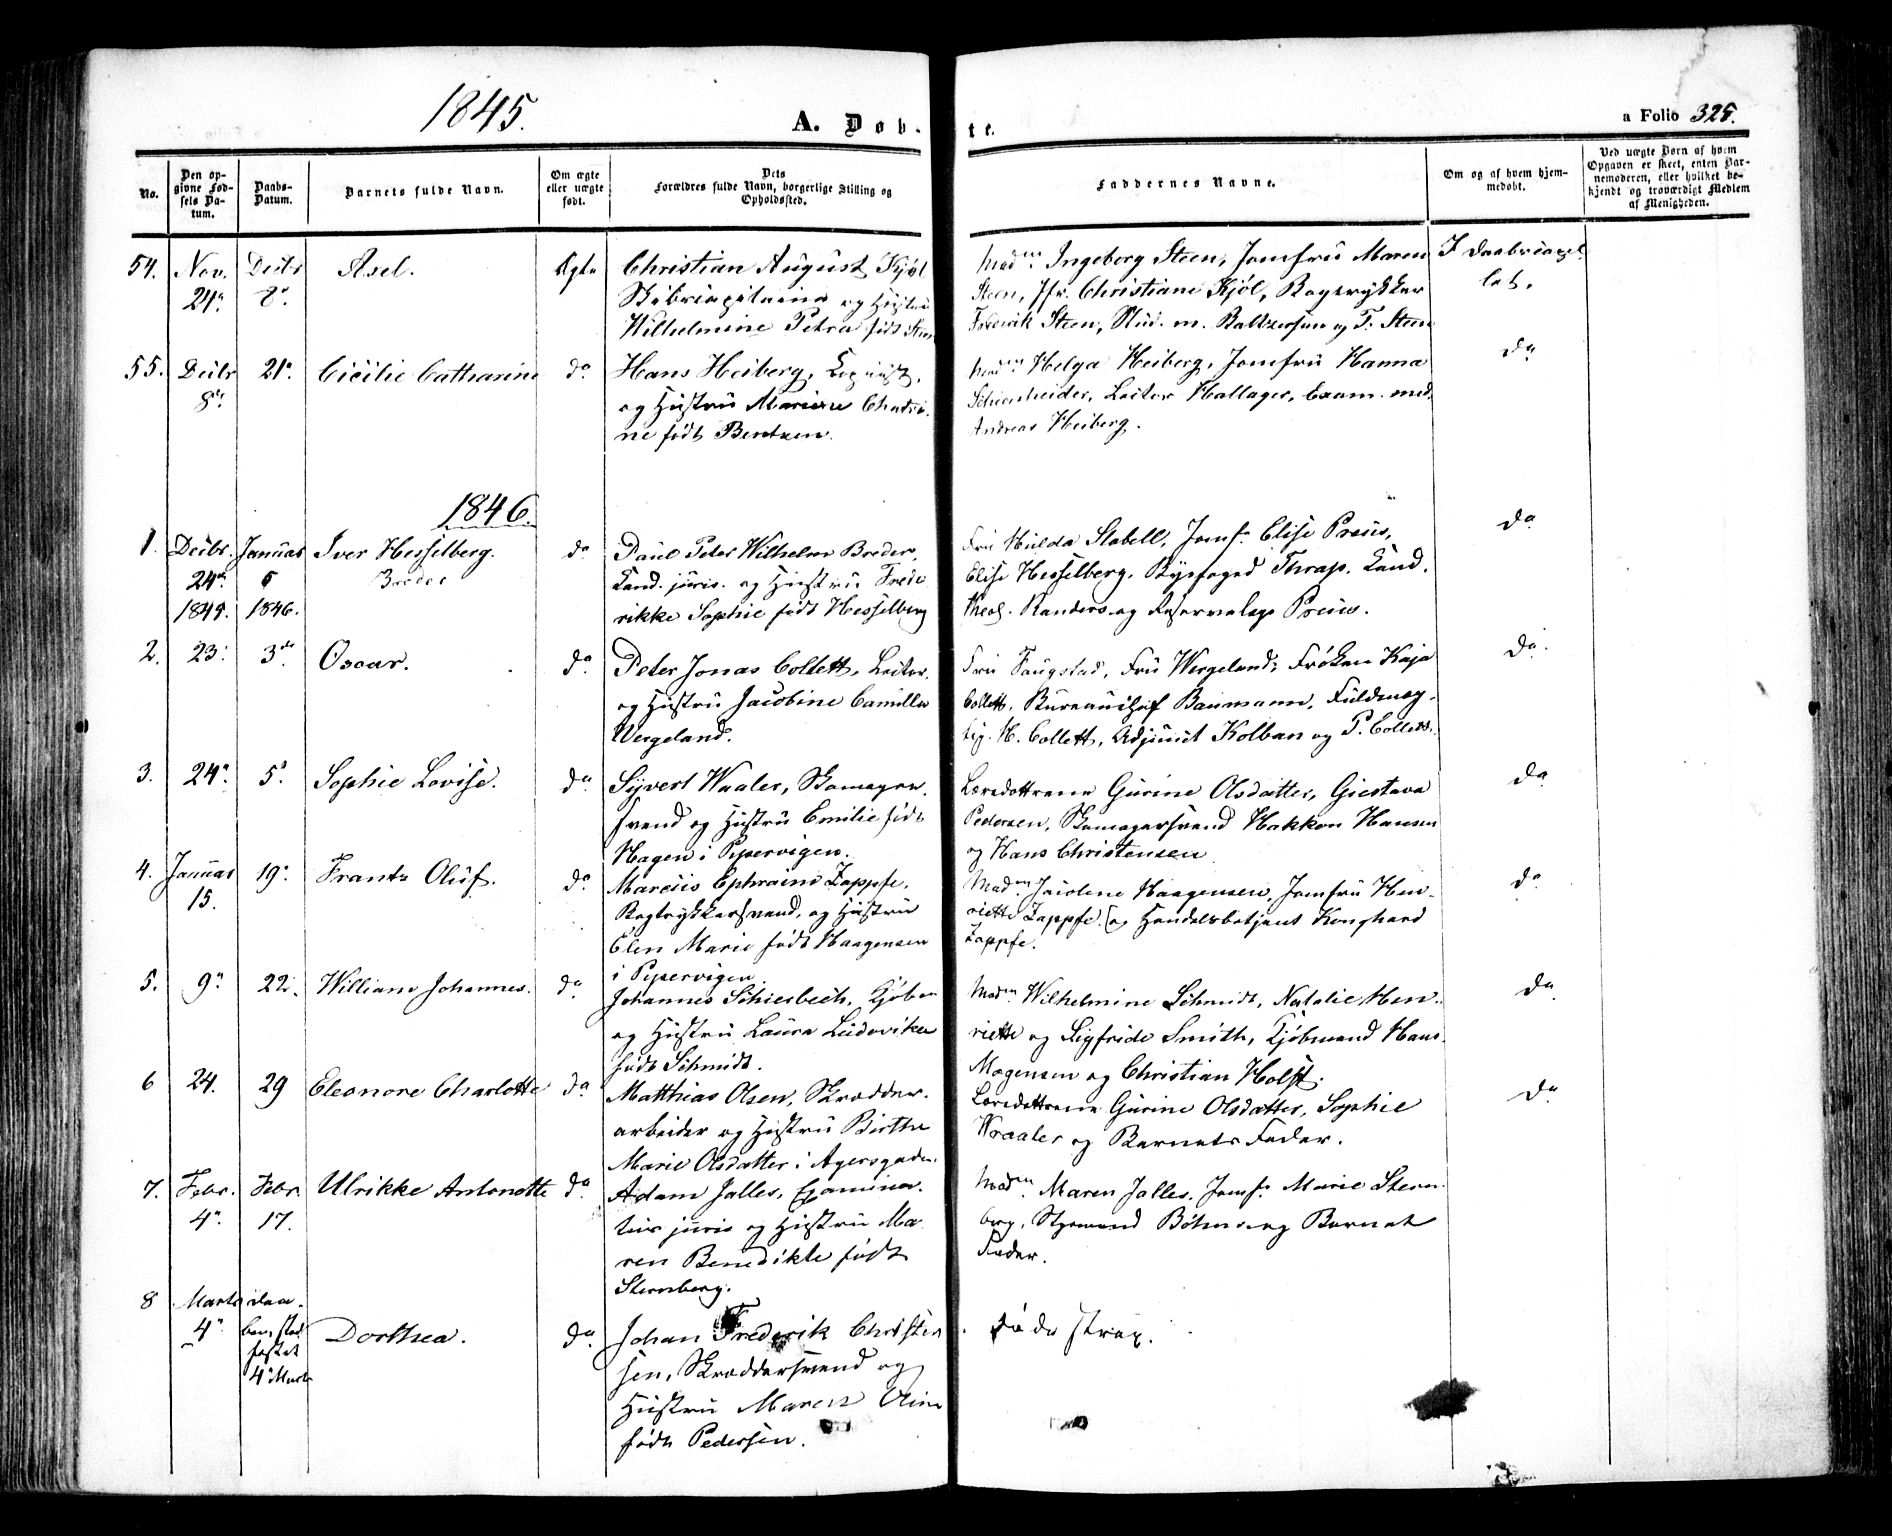 1845.
A. Døb-
te.
a Folio 325.
No.
Den op-
givne Fød-
sels Da-
tum.
Daabs-
Datum.
Barnets fulde Navn.
Om ægte
eller uægte
født.
Dets
Forældres fulde Navn, borgerlige Stilling og
Opholdssted.
Faddernes Navne.
Om og af hvem hjem-
medøbt.
Ved uægte Børn af hvem
Opgaven er skeet, enten Bar-
nemoderen, eller hvilket be-
kjendt og troværdigt Medlem
af Menigheden.
54.
Nov.
24de
Decbr
8de
Axel.
Ægte
Christian August Kjøl
Skibscapitaine og Hustru
Wilhelmine Petra født Steen
Madm Ingeborg Steen, Jomfru Maren
Steen, Jfr. Christiane Kjøl, Bogtrykker
Frederik Steen, Stud. m. Baltzersen og F. Steen
I Daabscapel
let.
55.
Decbr
8de
21de
Cicilie Catharine
do
Hans Heiberg,
og Hustru Mariane Chatri-
ne født Bentzen.
Madm Helga Heiberg, Jomfru Hanna
Schienheider, Lector Hallager, Exam. med.
Andreas Heiberg.
do
1846.
1.
Decbr.
24de
1845.
Januar
6
1846.
Iver Hesselberg.
Breder
do
Paul Peter Wilhelm Breder,
Cand. juris. og Hustru Frede
rikke Sophie født Hesselberg
Fru Hulda Stabell, Jomfr Elise Preus,
Elise Hesselberg, Byfoged Thrap, Cand.
theol. Randers og Reservelæge Preus.
do
2.
23:
3de
Oscar.
do
Peter Jonas Collett, Lector,
og Hustru Jacobine Camilla
Wergeland.
Fru Faugstad, Fru Wergeland, Frøken Kaja
Collett, Bureauchef Baumann, Fuldmæg-
tig. H. Collett, Adjunct Kolban og P. Collett.
do.
3.
24de
5te
Sophie Lovise.
do
Syvert Waaler, Skomager-
svend og Hustru Emilie født
Hagen i Pipervigen.
Læredøttrene Gurine Olsdatter, Gustava
Pedersen, Skomagersvend Hakkon Hansen
og Hans Christensen
do
4.
Januar
15.
19de
Frants Oluf.
do
Marcus Ephraim Zappfe,
Bogtrykkersvend, og Hustru
Elen Marie født Haagensen
i Pipervigen
Madm Jacobine Haagensen, Jomfru Hen-
riette Zappfe, og Handelsbetjent Konghard
Zappfe.
do
5.
9de
22de
William Johannes.
do
Johannes Schiesbech, Kjøbm
og Hustru Laura Ludovika
født Schmidt.
Madm Wilhelmine Schmidt, Natalie Hen-
riette og Sigfride Smith, Kjøbmand Hans
Mogensen og Christian Holst.
do
6
24.
29
Eleonore Charlotte
do
Matthias Olsen, Skrædder-
arbeider og Hustru Birthe
Marie Olsdatter i Agersgaden.
Læredøttrene Gurine Olsdatter, Sophie
Waaler og Barnets Fader.
do
7.
Febr.
4de
Febr.
17.
Ulrikke Antonette
do
Adam Jalles, Examina-
tus juris og Hustru Ma-
ren Benedikte født
Sternberg.
Madm Maren Jalles, Jomfr Marie Stern-
berg, Styrmand Bøhm og Barnet
Fader.
8
Marts
4de
fæstet
4 Marts
Dorthea.
do
Johan Frederik Christen
sen, Skræddersvend og
Hustru Maren Oline
født Pedersen.
døde strax.